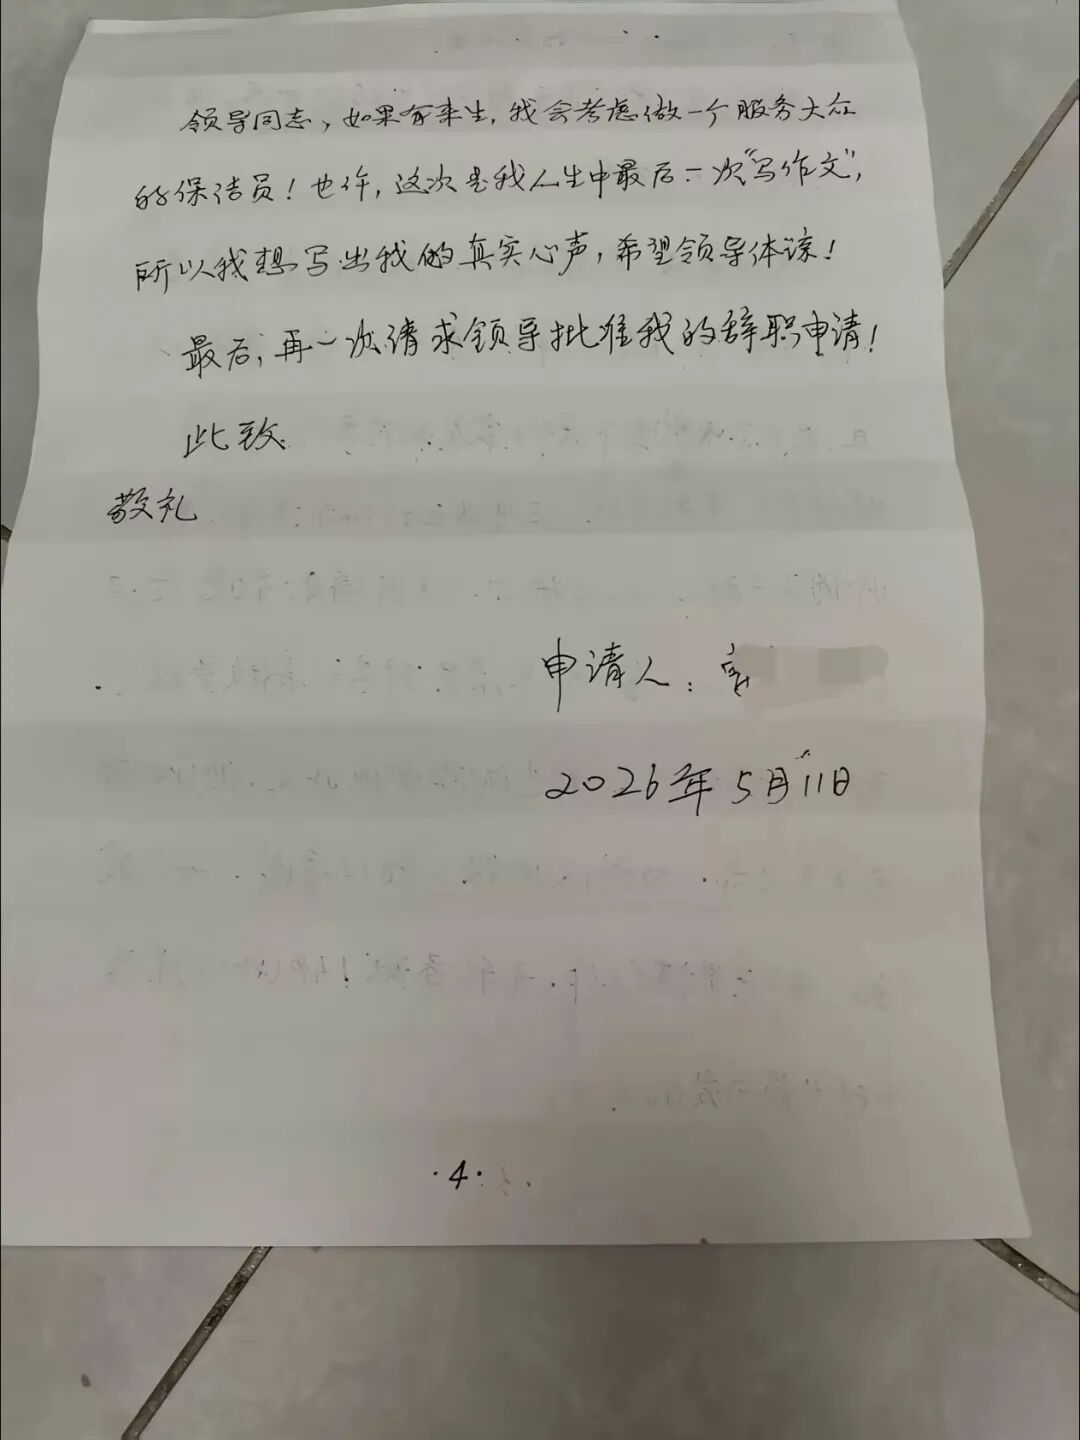 领导同志，如果有来生，我会考虑做一个服务大众
的保洁员！也许，这次是我人生中最后一次“写作文”，
所以我想写出我的真实心声，希望领导体谅！
最后，再一次请求领导批准我的辞职申请！
此致
敬礼
申请人：
2026年5月11日
·4·